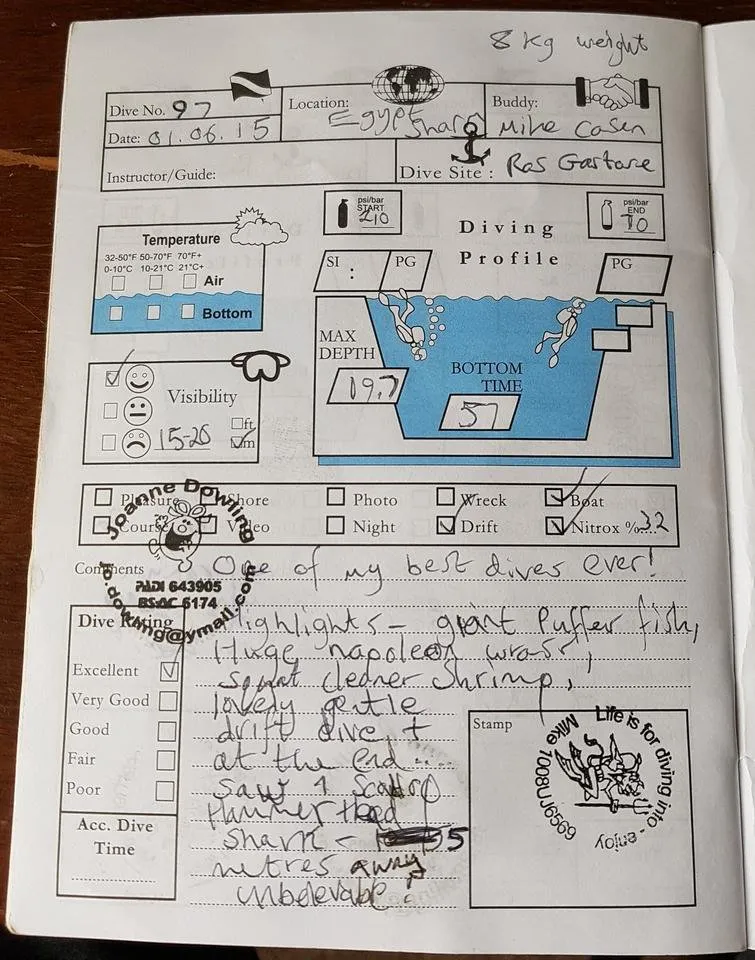 8 Kg weight
Dive No. 97
Location: Egypt Sharm
Buddy: Mike Casen
Date: 01.06.15
Instructor/Guide:
Dive Site: Ras Gastane
psi/bar START 210
psi/bar END 70
Diving Profile
Temperature
32-50°F 50-70°F 70°F+
0-10°C 10-21°C 21°C+
Air
Bottom
SI : PG
PG
MAX DEPTH
19.7
BOTTOM TIME
57
Visibility
15-20
ft
m
Pleasure Shore Photo Wreck Boat
Course Video Night Drift Nitrox %32
Joanne Dowling
PADI 643905
BSAC 6174
jo.dowling@ymail.com
Comments One of my best dives ever!
Highlights - giant Puffer fish,
Huge napoleon
cleaner Shrimp,
lovely gentle
drift dive, +
at the end ....
saw 1
Hammer Head
5
metres away
unbelevable!
Dive Rating
Excellent
Very Good
Good
Fair
Poor
Acc. Dive Time
Stamp
Life is for diving into - enjoy